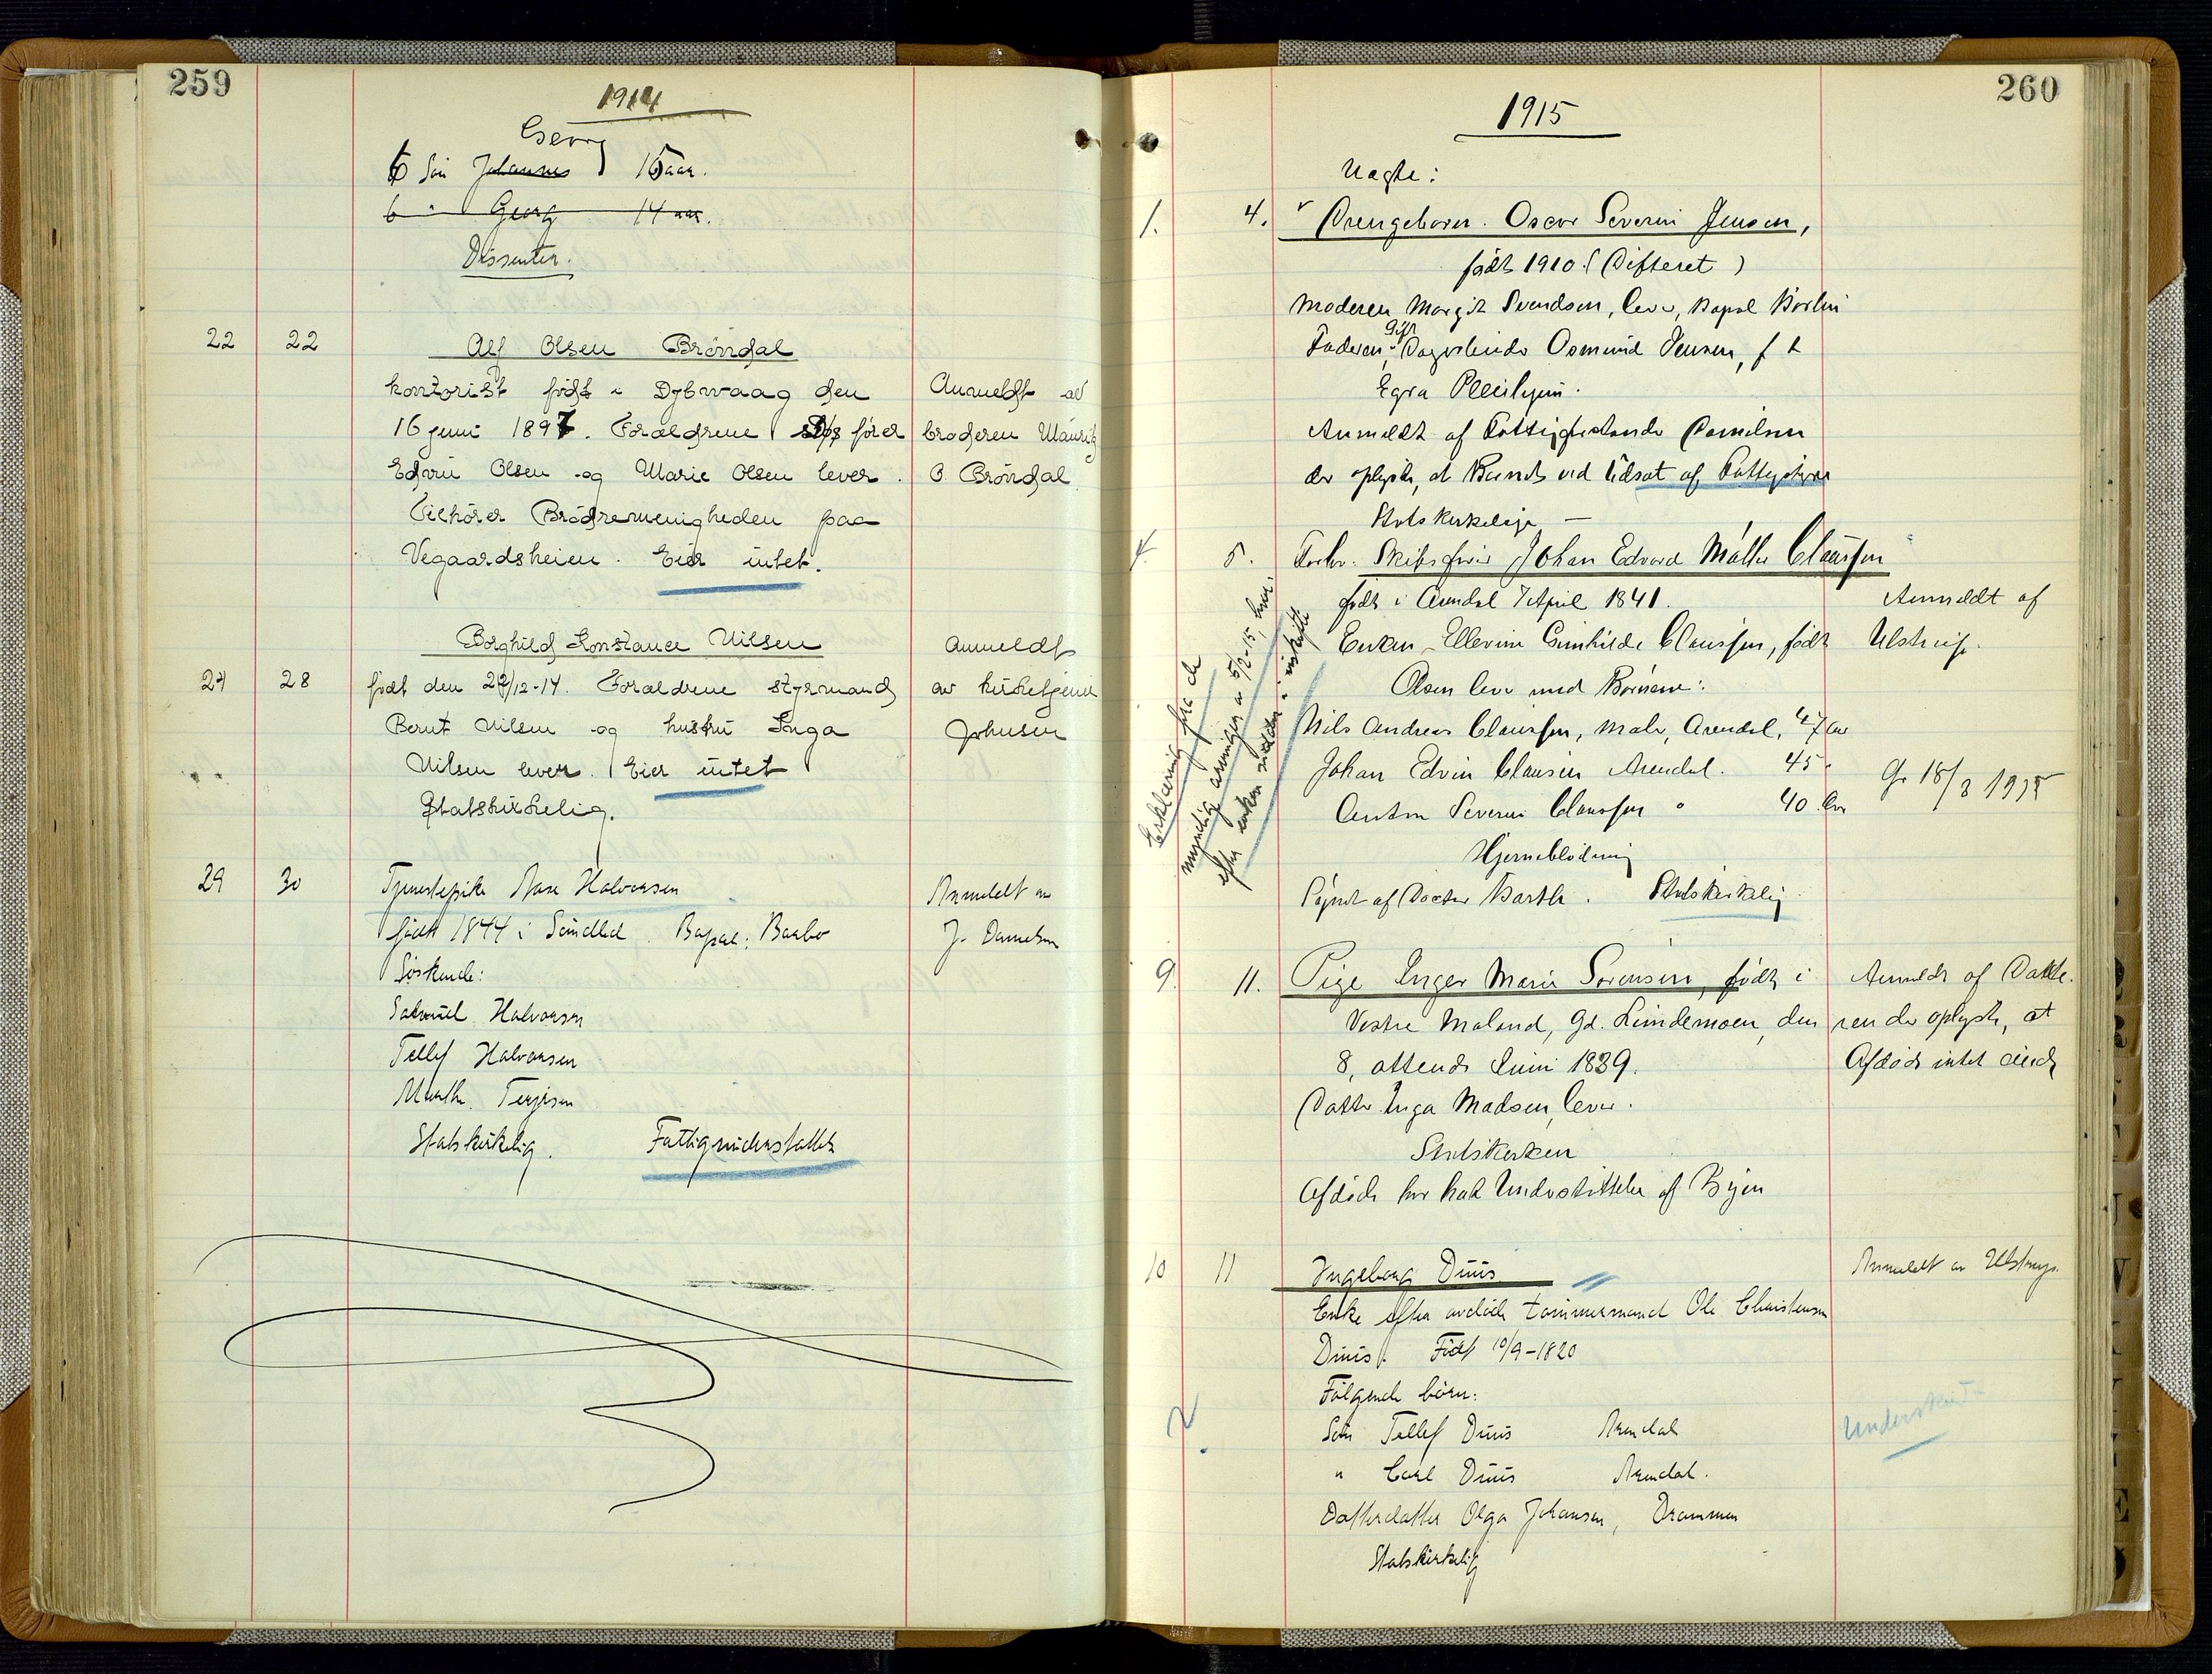 259
1914
Georg
6 Søn Johannes 16 aar.
6 " Georg 14 aar.
Dissenter.
22 22 Alf Olsen Bröndal
kontorist født i Dybvaag den
16 juni 1897. Forældrene förer
Edvin Olsen og Marie Olsen lever.
Tilhører Brödremenigheden paa
Vegaardsheien. Eier intet.
Anmeldt av
broderen Mauritz
O. Bröndal
27 28 Borghild Konstance Nilsen
født den 22/12-14. Forældrene styrmand
Bernt Nilsen og hustru Inga
Nilsen lever. Eier intet
Statskirkelig.
Anmeldt
av kirketjener
Johnsen
29 30 Tjenestepike Aase Halvorsen
født 1844 i Söndled. Bopæl: Barbo
Söskende:
Salomiel Halvorsen
Tellef Halvorsen
Marthe Terjesen
Statskirkelig. Fattigunderstøttet
Anmeldt av
J. Danielsen
260
1915
Uægte:
1. 4. Drengebarn Oscar Severin Jensen,
født 1910. (Difterit)
Moderen Margit Svendsen, lever, Bopæl
Faderen Gift Osmund Jensen, f. t.
Egra Pleiehjem.
Anmeldt af Fattigforstander Danielsen
der oplyste, at Barnet var Udsat af Fattigstyret
Statskirkelig
4. 5. Forhv. Skibsfører Johan Edvard Møller Claussen
født i Arendal 7 April 1841.
Enken Ellevine Gunhilde Claussen, født
Olsen lever med Børnene:
Nils Andreas Claussen, maler, Arendal, 47 aar
Johan Edvin Clausen Arendal. 45 "
Anton Severin Claussen " 40 aar
Hjerneblødning
Synet af Doctor Barth. Statskirkelig.
Anmeldt af
Ulstrup.
18/3 1915
Erklæring fra de
myndige arvinger av 5/2-15, hvor
efter enken sidder i uskifte
9. 11. Pige Inger Marie Sørensen, født i
Vestre Moland, Gd. Lindemoen, den
8, ottende Juni 1839.
Datter Inga Madsen, lever.
Statskirken
Afdøde har hat Understøttelse af Byen
Anmeldt af Datte-
ren der oplyste, at
Afdøde intet eiede
10 11 Ingeborg Duus
Enke efter avdøde tømmermand Ole Christensen
Duus. Født 10/9-1820
Følgende børn:
Søn Tellef Duus Arendal
" Carl Duus Arendal.
Datterdatter Olga Johansen, Drammen
Statskirkelig
Anmeldt av Ulstrup.